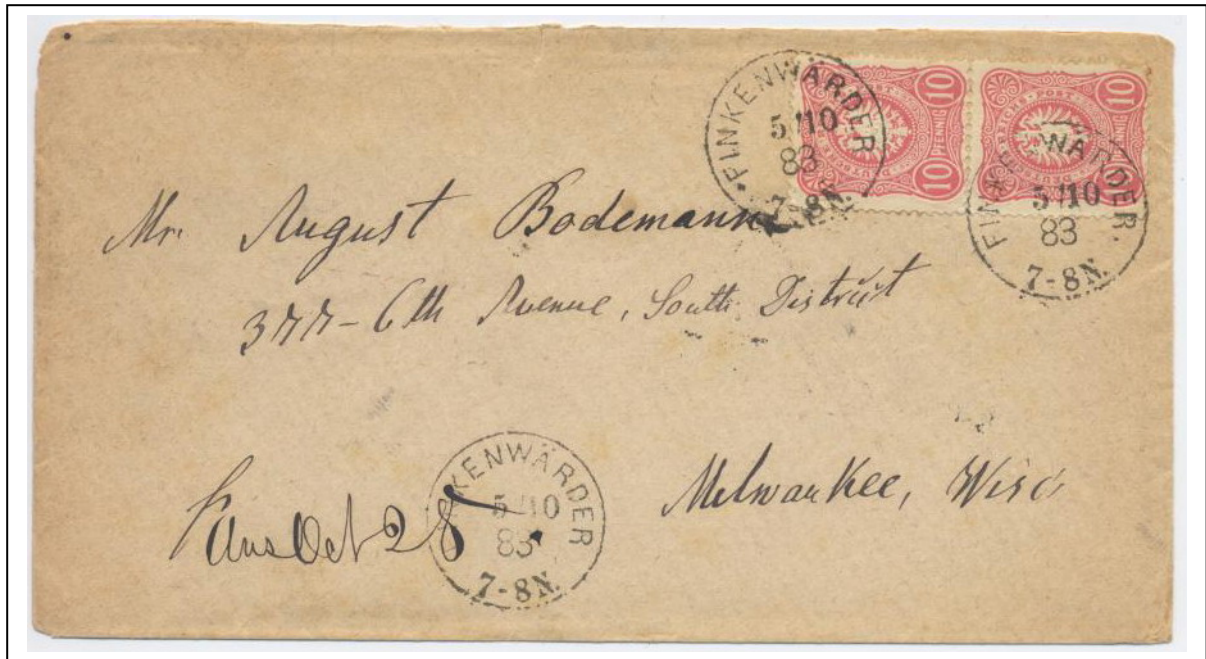 FINKENWÄRDER
5/10
83
7-8N.
10 10
REICHS-POST
10 PFENNIG 10
FINKENWÄRDER.
5/10
83
7-8N.
Mr. August Bodemann
377-6th Avenue, South District
Milwaukee, Wisc
Ans Oct 28
KENWÄRDER
5/10
83
7-8N.